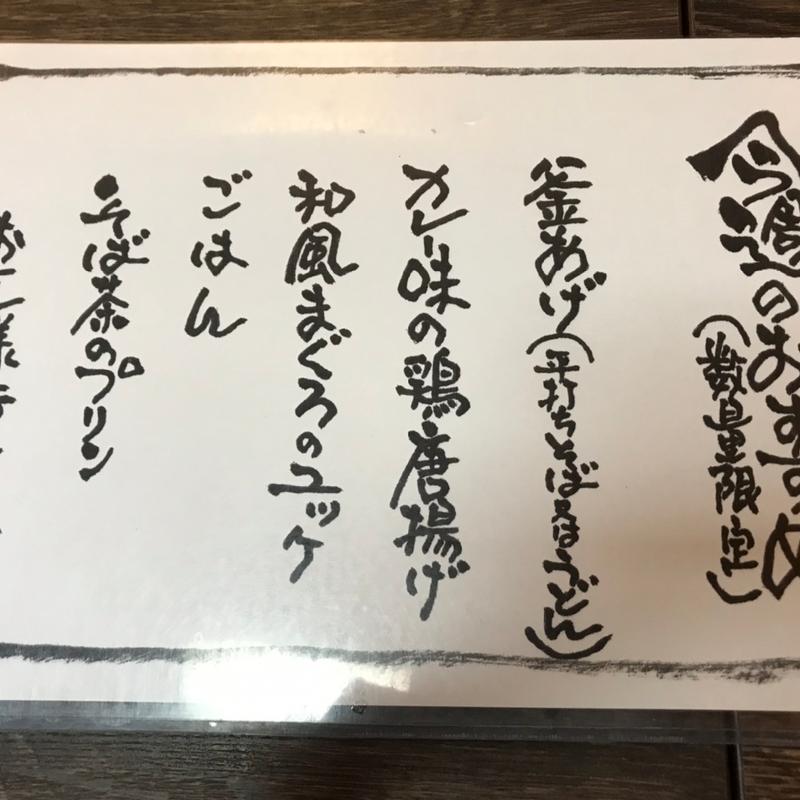 今週のおすすめ
(数量限定)
釜あげ(平打ちそば又はうどん)
カレー味の鶏唐揚げ
和風まぐろのユッケ
ごはん
そば茶のプリン